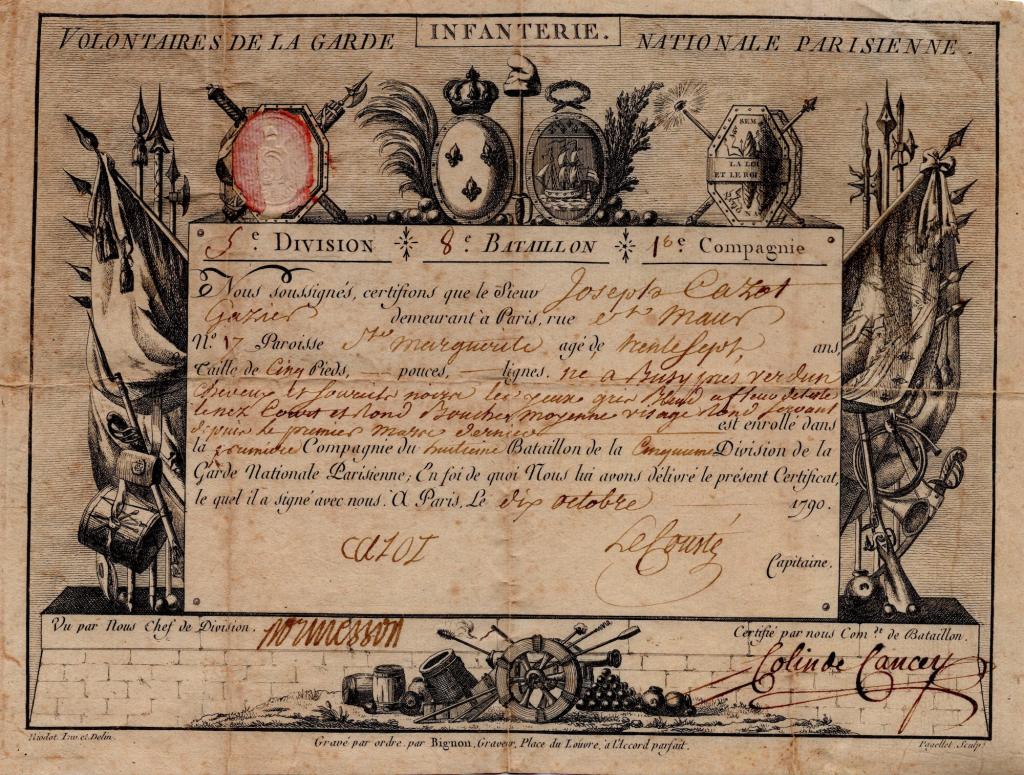 VOLONTAIRES DE LA GARDE INFANTERIE. NATIONALE PARISIENNE.
LA LOI
ET LE ROI
5e. DIVISION 8e. BATAILLON 1ere Compagnie
Nous soussignés, certifions que le Sieur Joseph Cazot
Gazier demeurant à Paris, rue St Maur
No. 17 Paroisse Ste Marguerite agé de trente Sept, ans,
Taille de Cinq Pieds, — pouces, — lignes. né a Busy pres verdun
Cheveux et Sourcils noirs les yeux gris Bleud
le nez Court et Rond Bouche Moyenne visage Rond Servant
depuis le premier Mars dernier est enrollé dans
la premiere Compagnie du huitieme Bataillon de la Cinquieme Division de la
Garde Nationale Parisienne; En foi de quoi Nous lui avons délivré le présent Certificat,
le quel il a signé avec nous. A Paris, Le dix octobre 1790.
CAZOT
Capitaine.
Vu par Nous Chef de Division. Certifié par nous Com.dt de Bataillon.
Colin de Cancey
Gravé par ordre, par Bignon, Graveur, Place du Louvre, à l'Accord parfait.